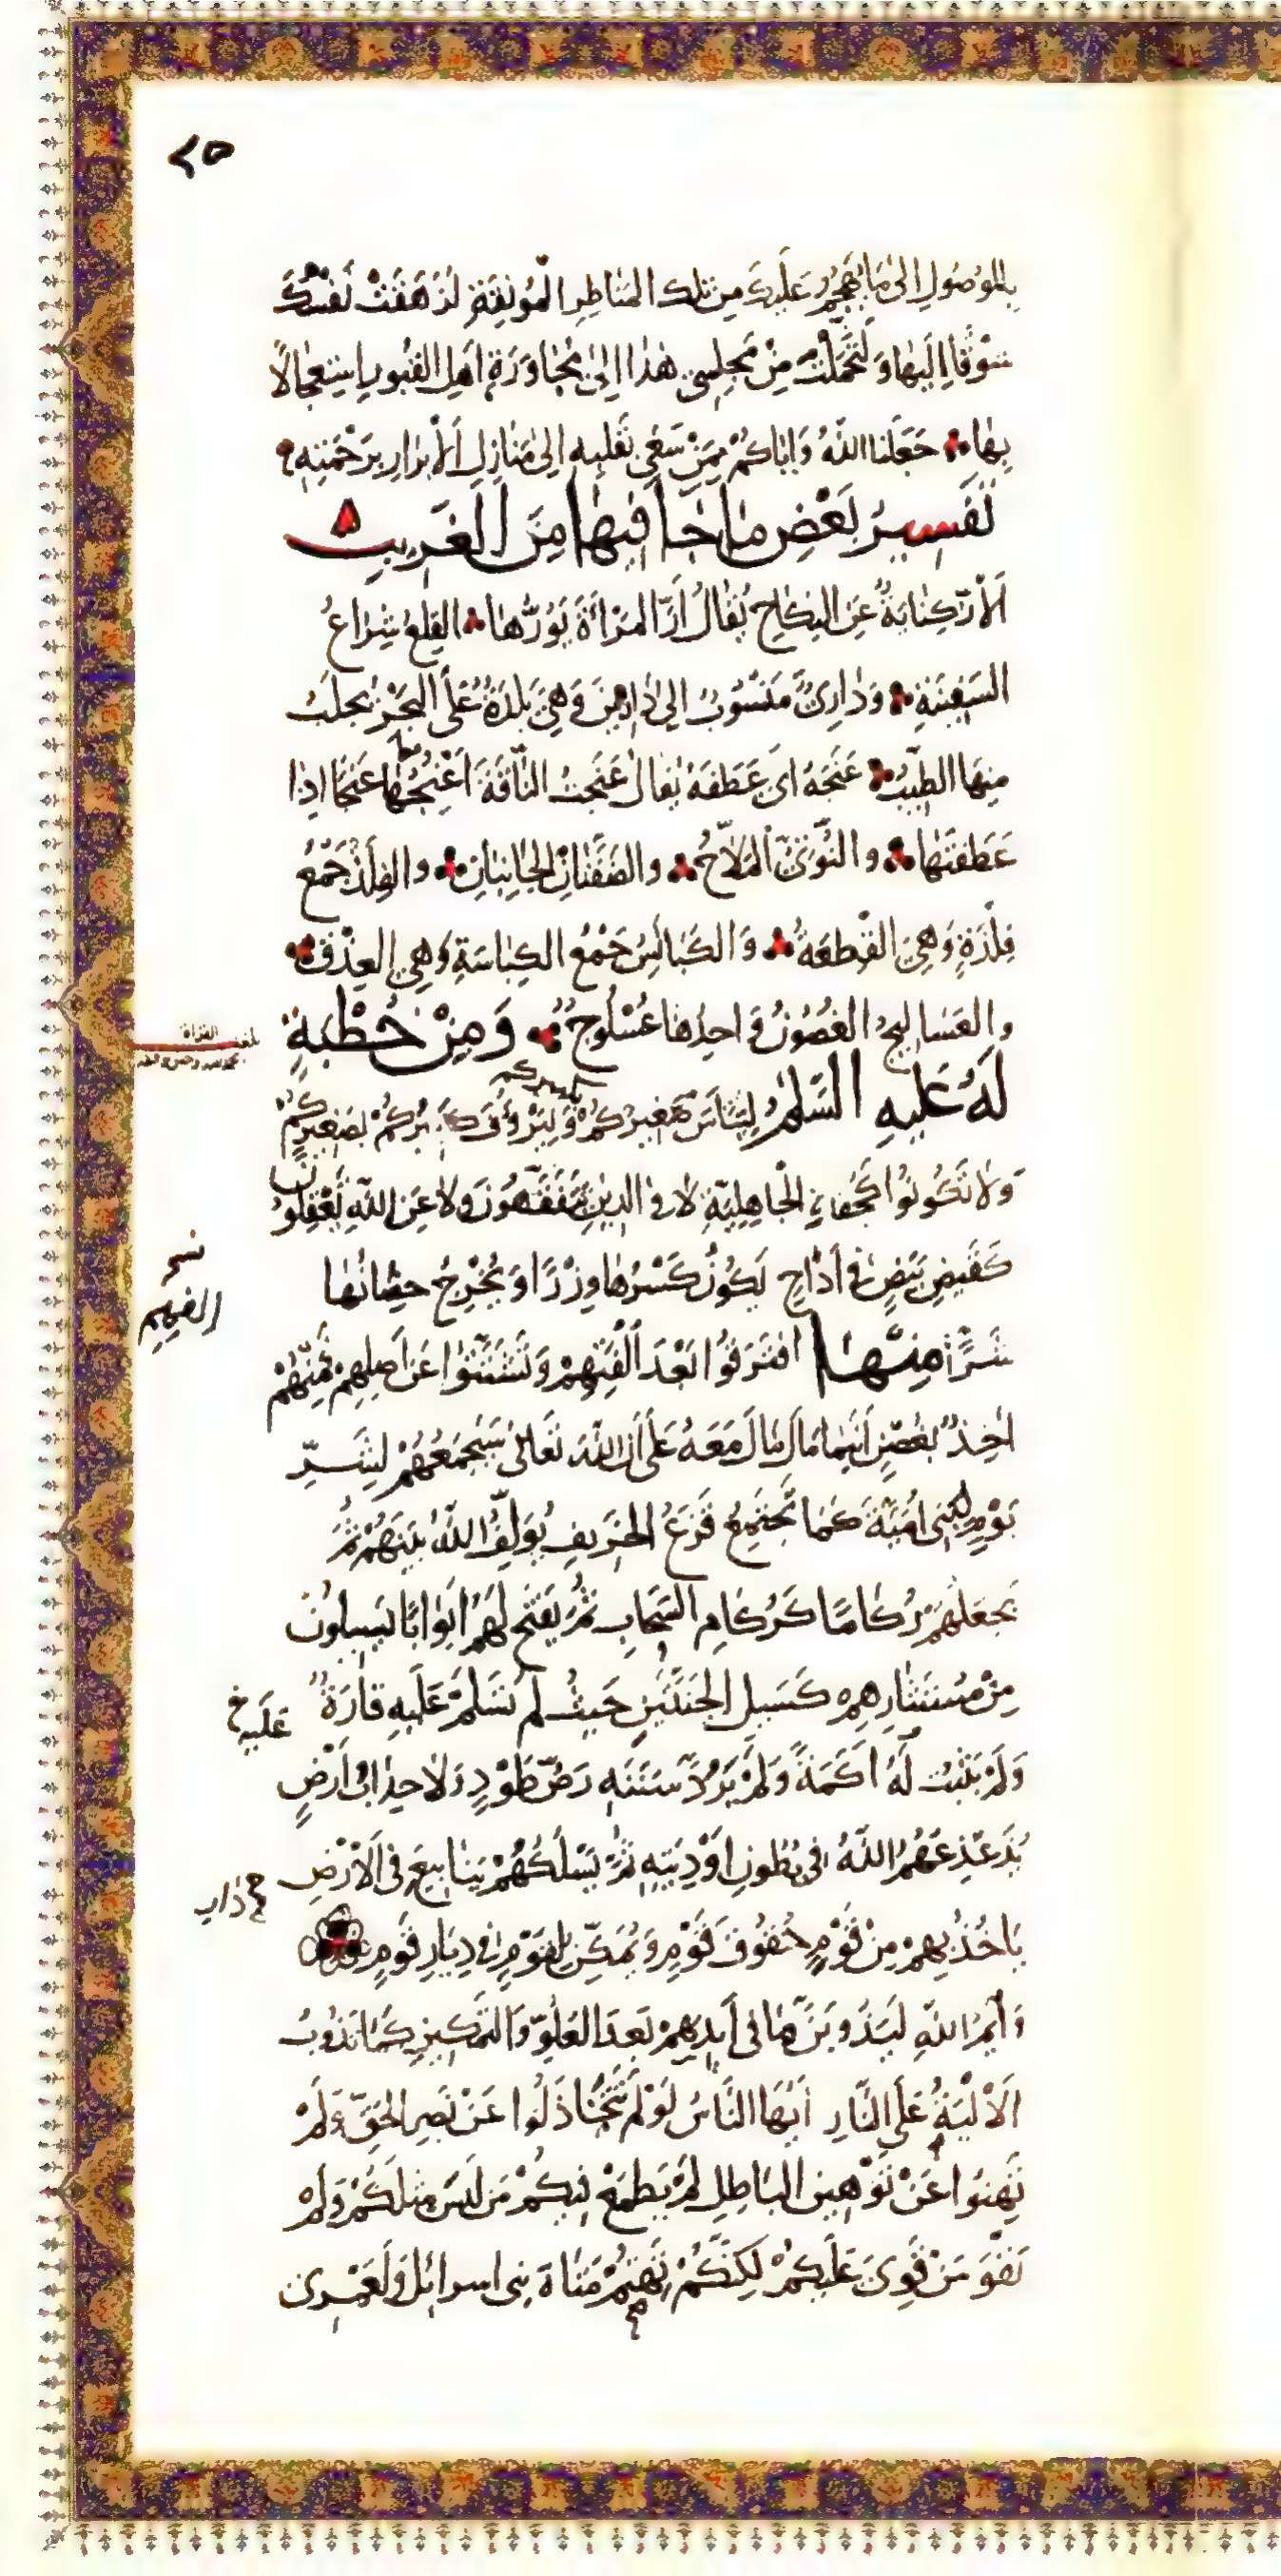 ٢٥
بِالوُصُولِ اِلىٰ مَا يَهْجُمُ عَلَيكَ مِن تلِكَ المَنَاظِرِ المُونِقَةِ لَزَهَقَتْ نَفْسُكَ
شَوْقًا اِلَيهَا وَلَتَحَمَّلْتَ مِنْ مَجلِسِى هٰذا اِلىٰ مُجَاوَرَةِ اَهلِ القُبُورِ استِعجَالًا
بِهَا جَعَلَنَا اللّٰهُ وَاِيَّاكُمْ مِمَّنْ سَعٰى بِقَلبِهِ اِلىٰ مَنَازِلِ الأبرَارِ بِرَحْمَتِهِ
تَفسيرُ بَعْضِ مَا جَا فيهَا مِنَ الغَرِيبِ
اَلأرُّ كِنَايَةٌ عَنِ النِكَاحِ يُقَالُ اَرَّ المَرْأَةَ يَؤُرُّهَا القِلعُ شِرَاعُ
السَفِينَةِ وَدَارِىٌّ مَنْسُوبٌ اِلى دَارِينَ وَهِىَ بَلدَةٌ عَلَى البَحْرِ يُجلَبُ
مِنهَا الطِيبُ عَنَجَهُ اى عَطَفَهُ يُقَالُ عَنَجتُ النَّاقَةَ اَعْنُجُهَا عَنْجًا اِذا
عَطَفتَهَا والنُوتىُّ المَلَّاحُ والضَفَّتَانِ الجَانِبَانِ والفِلَذُ جَمْعُ
فِلْذَةٍ وَهِىَ القِطعَةُ وَالكَبَائسُ جَمْعُ الكِبَاسَةِ وَهِىَ العِذْقُ
والعَسَاليجُ الغصُونُ وَاحِدُهَا عُسْلُوجٌ وَمِنْ خُطْبَةٍ
لَهُ عَلَيهِ السَّلمُ لِيَتَأَسَّ صَغِيرُكُمْ بِكَبِيرِكُم وَلْيَرْؤُفْ كَبِيرُكُمْ بِصَغِيرِكُمْ
وَلَا تَكُونُوا كَجُفَاةِ الجَاهِلِيَّةِ لَا فى الدِينِ تَتَفَقَّهُونَ وَلَا عَنِ اللّٰهِ تَعْقِلُونَ
كَقَيضِ بَيضٍ فى اَدَاحٍ يَكُونُ كَسْرُهَا وِزْرًا وَيُخْرِجُ حِضَانُهَا
شَرًّا مِنهَا افتَرَقُوا بَعْدَ اُلفَتِهِمْ وَتَشَتَّتُوا عَن اَصلِهِمْ فَمِنهُمْ
اٰخِذٌ بِغُصْنٍ اَينَمَا مَالَ مَالَ مَعَهُ عَلَى أَنَّ اللّٰهَ تَعَالىٰ سَيَجمَعُهُمْ لِشَرِّ
يَوْمٍ لِبَنِى اُمَيَّةَ كَمَا تَجتَمِعُ قَزَعُ الخَرِيفِ يُؤَلِّفُ اللّٰهُ بَينَهُمْ ثُمَّ
يَجعَلُهُمْ رُكَامًا كَرُكَامِ السَحَابِ ثُمَّ يَفتَحُ لَهُمْ اَبوَابًا يَسِيلُونَ
مِنْ مُستَثَارِهِمْ كَسَيلِ الجَنَتَينِ حَيثُ لَم تَسْلَمْ عَلَيهِ قَارَةٌ
وَلَمْ يَثبُت لَهُ اَكَمَةٌ وَلَمْ يَرُدَّ سَنَنَهُ رَصُّ طَوْدٍ وَلَا حِدَابُ اَرْضٍ
يُذَعْذِعُهُمُ اللّٰهُ فى بُطُونِ اَوْدِيَتِهِ ثُمَّ يَسلُكُهُمْ يَنَابِيعَ فى الأَرْضِ
يَاخُذُ بِهِمْ مِنْ قَوْمٍ حُقُوقَ قَوْمٍ وَيُمَكِّنُ لِقَوْمٍ فى دِيَارِ قَوْمٍ
وَأَيمُ اللّٰهِ لَيَذُوبَنَّ مَا فى اَيدِيهِمْ بَعدَ العُلُوِّ وَالتَمكِينِ كَمَا تَذُوبُ
الأَلْيَةُ عَلَى النَّارِ اَيّهَا النَّاسُ لَوْ لَمْ تَتَخَاذَلُوا عَنْ نَصرِ الحَقِّ وَلَمْ
تَهِنُوا عَنْ تَوْهِينِ البَاطِلِ لَمْ يَطمَعْ فِيكُمْ مَن لَيسَ مِثلَكُمْ وَلَمْ
يَقْوَ مَنْ قَوِىَ عَلَيكُمْ لَكِنَّكُمْ تِهتُمْ مَتَاهَ بَنِى اسرائلَ وَلَعَمْرِى
عَلَيهِ خ